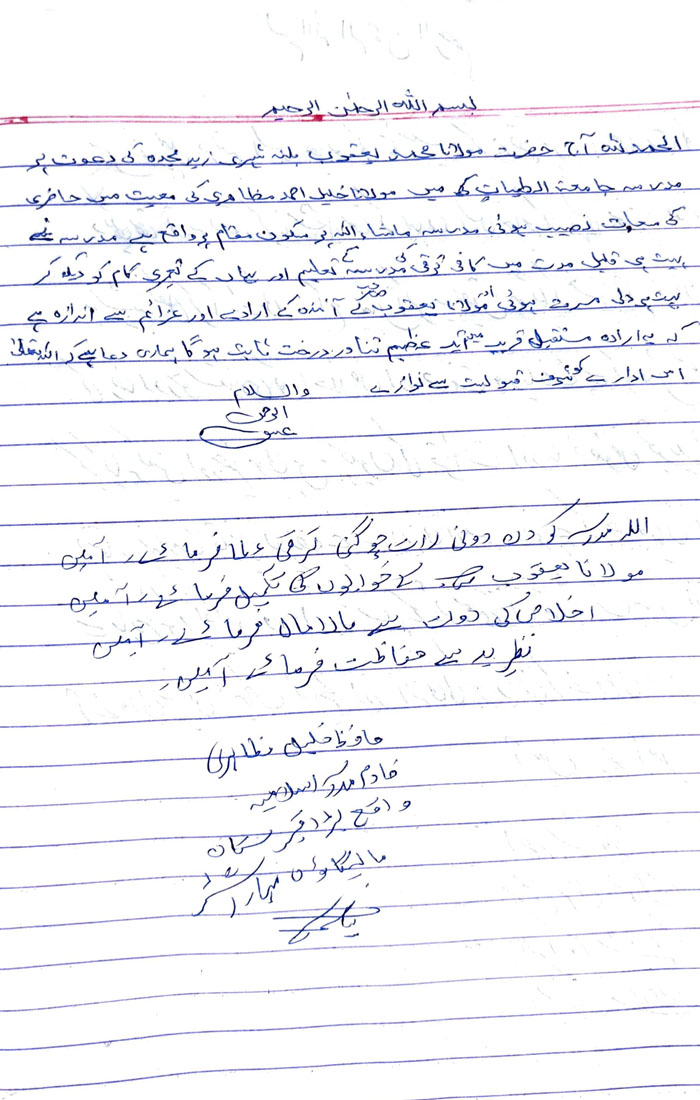 بسم اللہ الرحمٰن الرحیم
الحمدللہ آج حضرت مولانا محمد یعقوب بلند شہری زید مجدہ کی دعوت پر
مدرسہ جامعۃ الطیبات میں مولانا خلیل احمد مظاہری کی معیت میں حاضری
کی سعادت نصیب ہوئی مدرسہ ماشاءاللہ پر سکون مقام پر واقع ہے مدرسہ نے
بہت ہی قلیل مدت میں کافی ترقی کی مدرسہ کے تعلیم اور یہاں کے تعمیری کام کو دیکھ کر
بہت ہی دلی مسرت ہوئی مولانا یعقوب صاحب کے آئندہ کے ارادے اور عزائم سے اندازہ ہے
کہ یہ ادارہ مستقبل قریب میں ایک عظیم تناور درخت ثابت ہوگا ہماری دعا ہے کہ اللہ تعالیٰ
اس ادارے کو شرف قبولیت سے نوازے والسلام
اللہ مدرسہ کو دن دونی رات چوگنی ترقی عطا فرمائے، آمین
مولانا یعقوب کے خوابوں کی تکمیل فرمائے، آمین
اخلاص کی دولت سے مالامال فرمائے، آمین
نظر بد سے حفاظت فرمائے آمین۔
حافظ خلیل مظاہری
خادم مدرسہ اسلامیہ
واقع بڑا قبرستان
مالیگاؤں مہاراشٹر